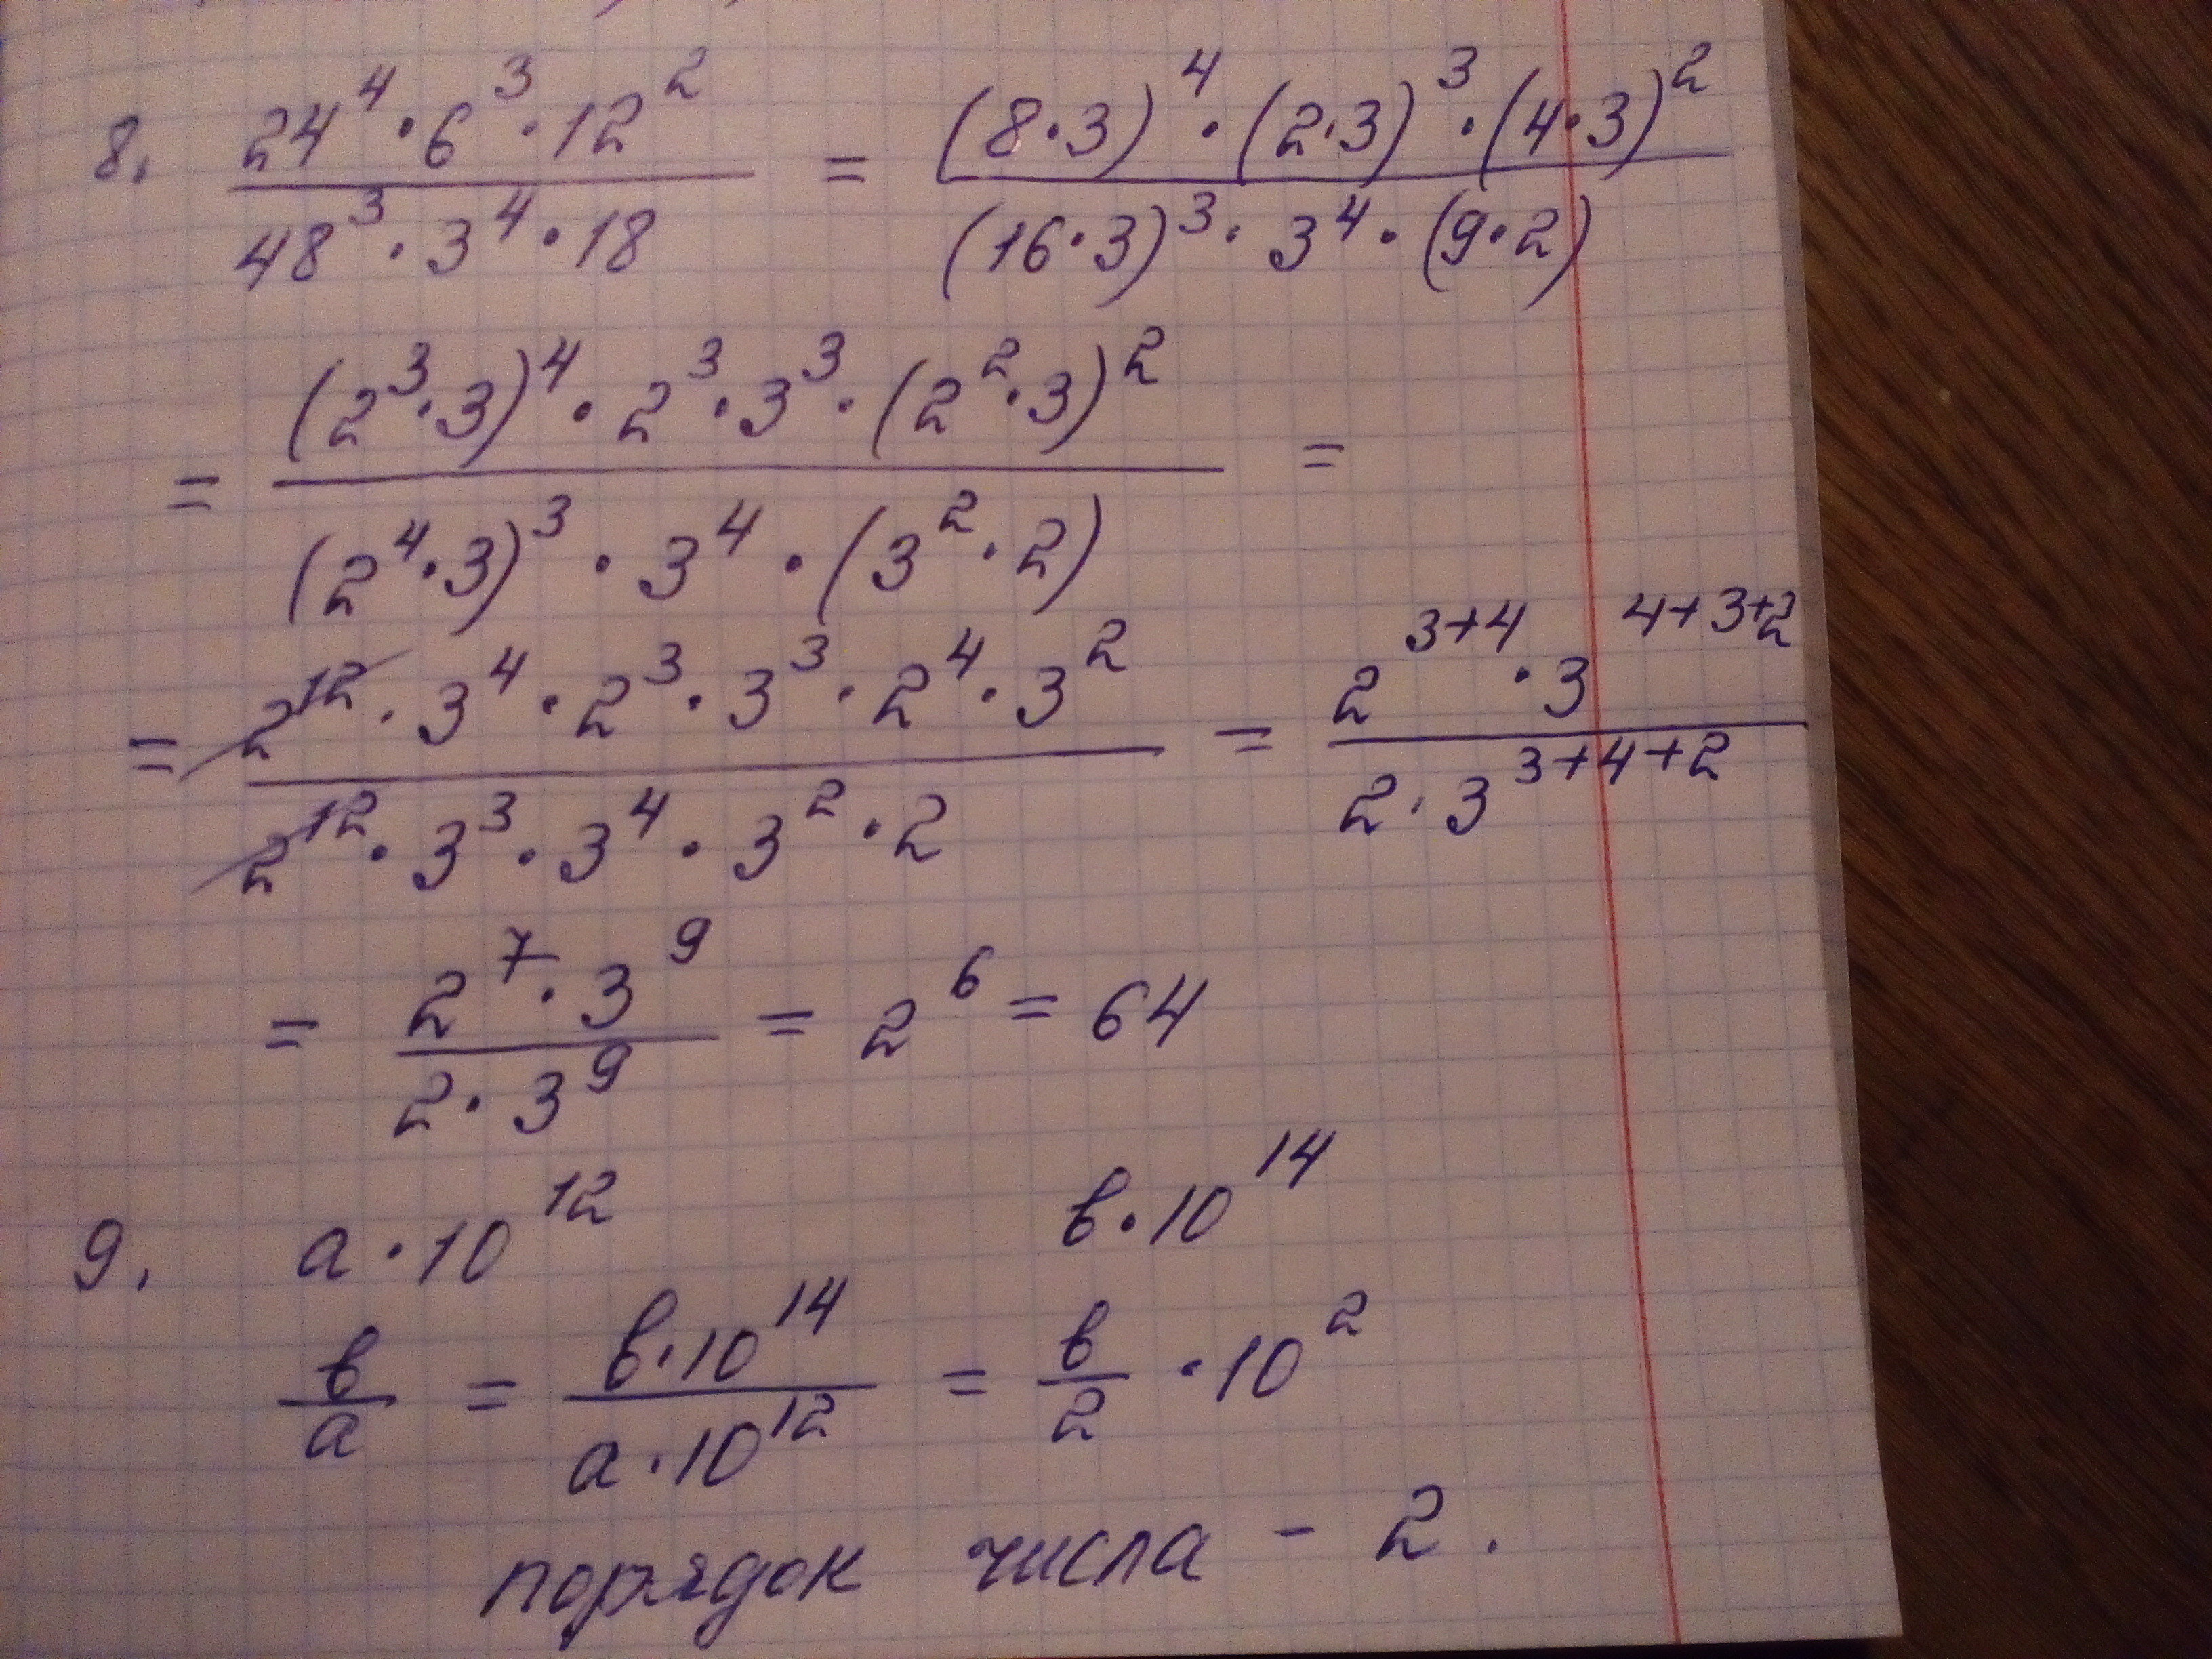 8. \frac{24^4 · 6^3 · 12^2}{48^3 · 3^4 · 18} = \frac{(8·3)^4 · (2·3)^3 · (4·3)^2}{(16·3)^3 · 3^4 · (9·2)}
= \frac{(2^3·3)^4 · 2^3 · 3^3 · (2^2·3)^2}{(2^4·3)^3 · 3^4 · (3^2·2)} =
= \frac{2^{12} · 3^4 · 2^3 · 3^3 · 2^4 · 3^2}{2^{12} · 3^3 · 3^4 · 3^2 · 2} = \frac{2^{3+4} · 3^{4+3+2}}{2 · 3^{3+4+2}}
= \frac{2^7 · 3^9}{2 · 3^9} = 2^6 = 64
9. а · 10^{12} в · 10^{14}
\frac{в}{а} = \frac{в·10^{14}}{а·10^{12}} = \frac{в}{2} · 10^2
порядок числа - 2.